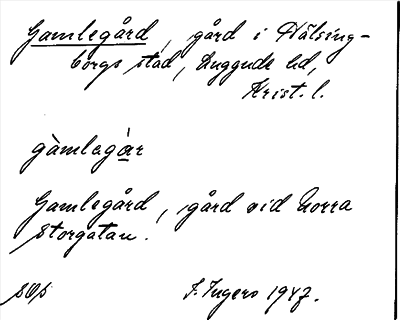 Gamlegård, gård i Hälsing-
borgs stad, Luggude hd,
Krist. l.
gàmlegár
Gamlegård, gård vid Norra
Storgatan.
SOS
F. Ingers 1947.